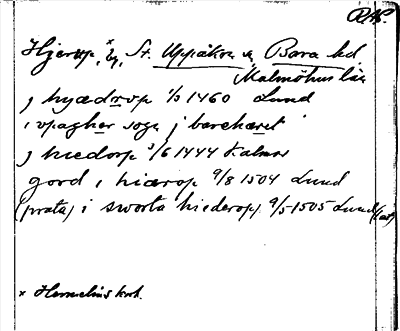 RAP.
Hjerup, x by, St. Uppåkra sn Bara hd
Malmöhus län
j hyædrvp 1/3 1460 Lund
i vpagher sogn j barehæret
j hiedorp 3/6 1444 Kalmar
gord i hiærop 9/8 1504 Lund
(prata) i sworta hiederop) 9/5 1505 Lund (
x Hemelius krk.